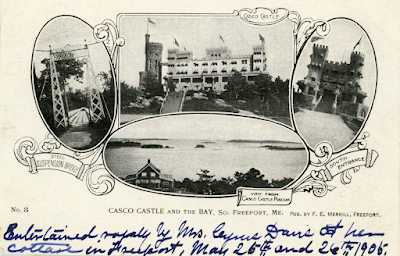 CASCO CASTLE
CASCO CASTLE, SO. FREEPORT, ME.
STEEL
SUSPENSION BRIDGE
SOUTH
ENTRANCE
VIEW FROM
CASCO CASTLE PIAZZAS
No. 3
CASCO CASTLE AND THE BAY, SO. FREEPORT, ME. PUB. BY F. E. MERRILL, FREEPORT.
Entertained royally by Mrs. Cyrus Davis at her
cottage in Freeport, May 25th and 26th 1906.